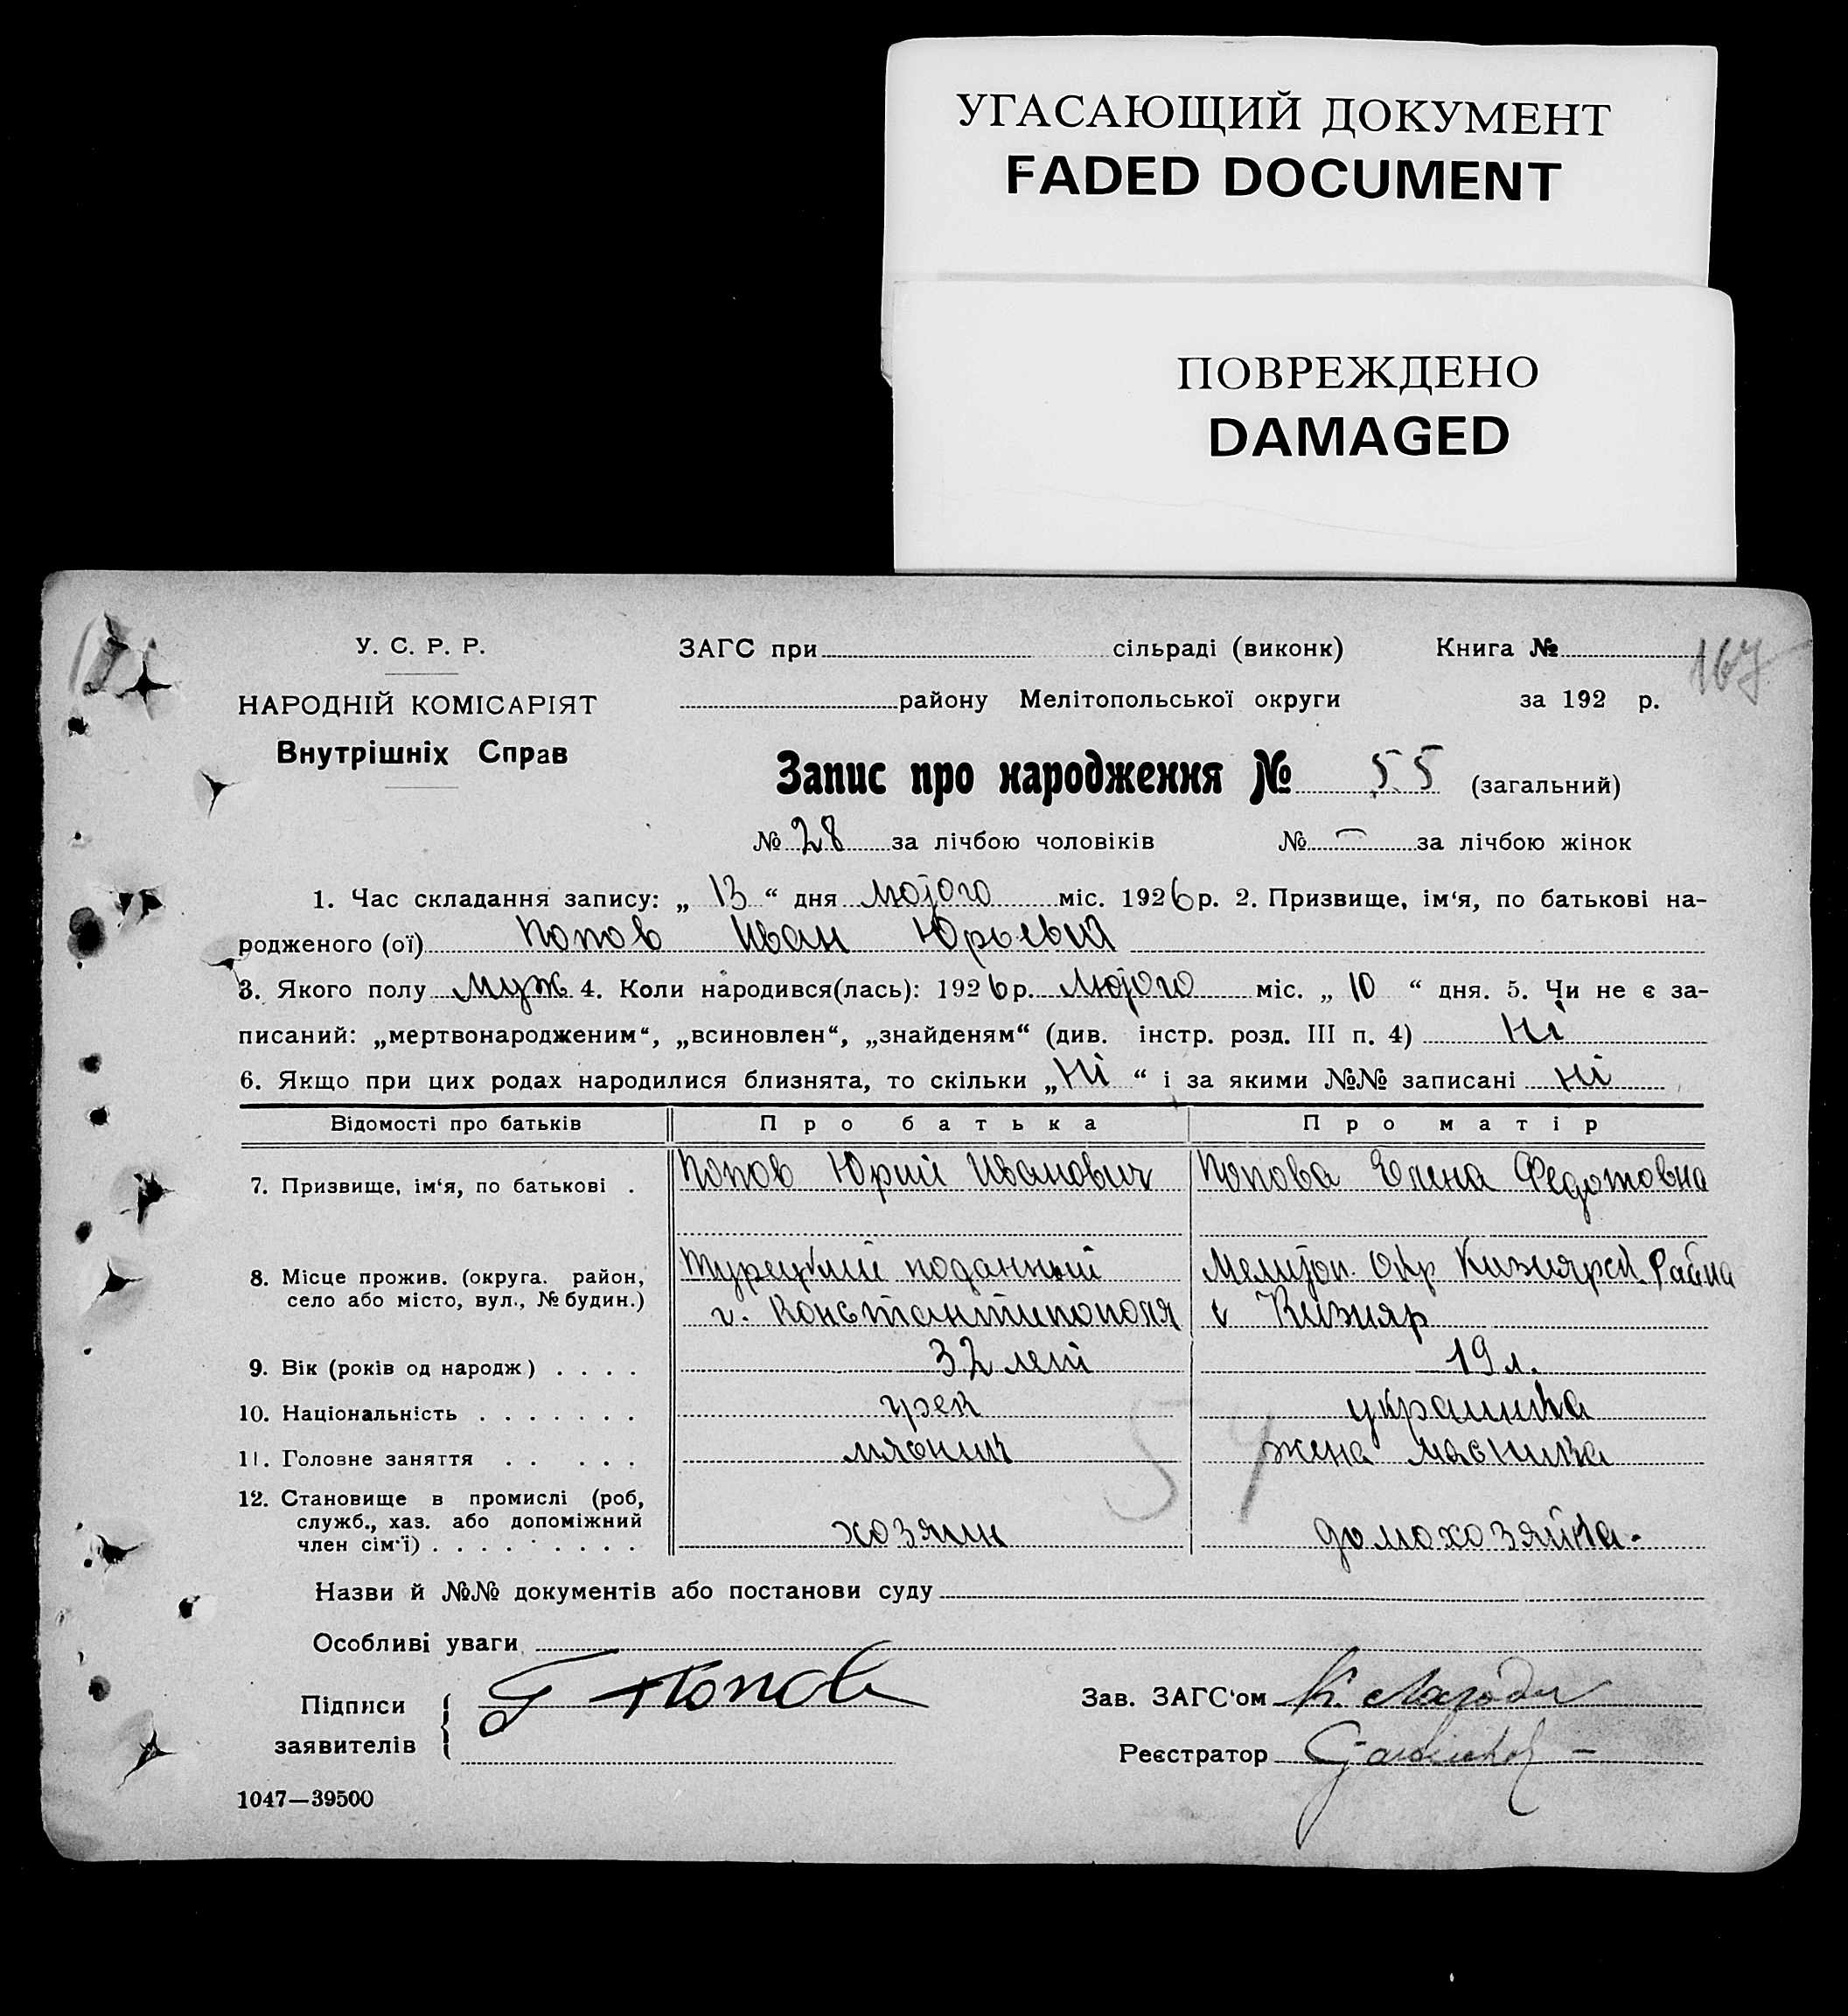 УГАСАЮЩИЙ ДОКУМЕНТ
FADED DOCUMENT
ПОВРЕЖДЕНО
DAMAGED
У. С. Р. Р.
НАРОДНІЙ КОМІСАРІЯТ
Внутрішніх Справ
ЗАГС при сільраді (виконк) Книга №
167
району Мелітопольської округи за 192 р.
Запис про народження № 55 (загальний)
№ 28 за лічбою чоловіків № — за лічбою жінок
1. Час складання запису: „ 13 “ дня лютого міс. 1926 р. 2. Призвище, ім‘я, по батькові на-
родженого (ої) Попов Иван Юрьевич
3. Якого полу муж 4. Коли народився(лась): 1926 р. лютого міс. „ 10 “ дня. 5. Чи не є за-
писаний: „мертвонародженим“, „всиновлен“, „знайденям“ (див. інстр. розд. III п. 4) Ні
6. Якщо при цих родах народилися близнята, то скільки „Ні “ і за якими №№ записані ні
Відомості про батьків Про батька Про матір
7. Призвище, ім‘я, по батькові . Попов Юрий Иванович Попова Елена Федотовна
8. Місце прожив. (округа. район, село або місто, вул., № будин.) Турецкий поданный г. Константинополя Мелитоп. Окр Кизиярск. Района с Кизияр
9. Вік (років од народж) . . . . 32 лет 19 л.
10. Національність . . . . . . . грек украинка
11. Головне заняття . . . . . мясник жена мясника
54
12. Становище в промислі (роб, служб., хаз. або допоміжний член сім‘ї) . . . . . . . . . хозяин домохозяйка.
Назви й №№ документів або постанови суду
Особливі уваги
Підписи заявителів Г Попов
Зав. ЗАГС‘ом
Реєстратор
1047—39500